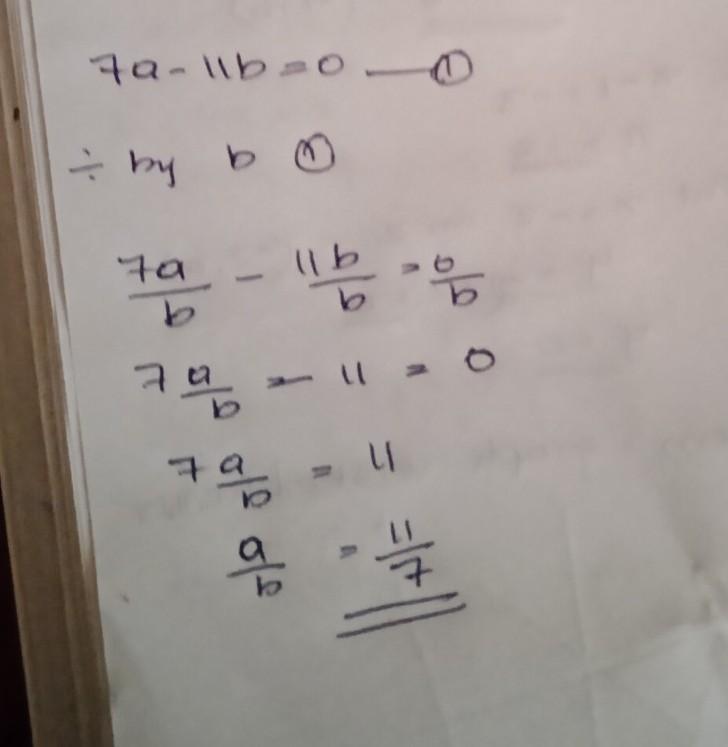 7a - 11b = 0 — ①
÷ by b ①
7a/b - 11b/b = 0/b
7 a/b - 11 = 0
7 a/b = 11
a/b = 11/7